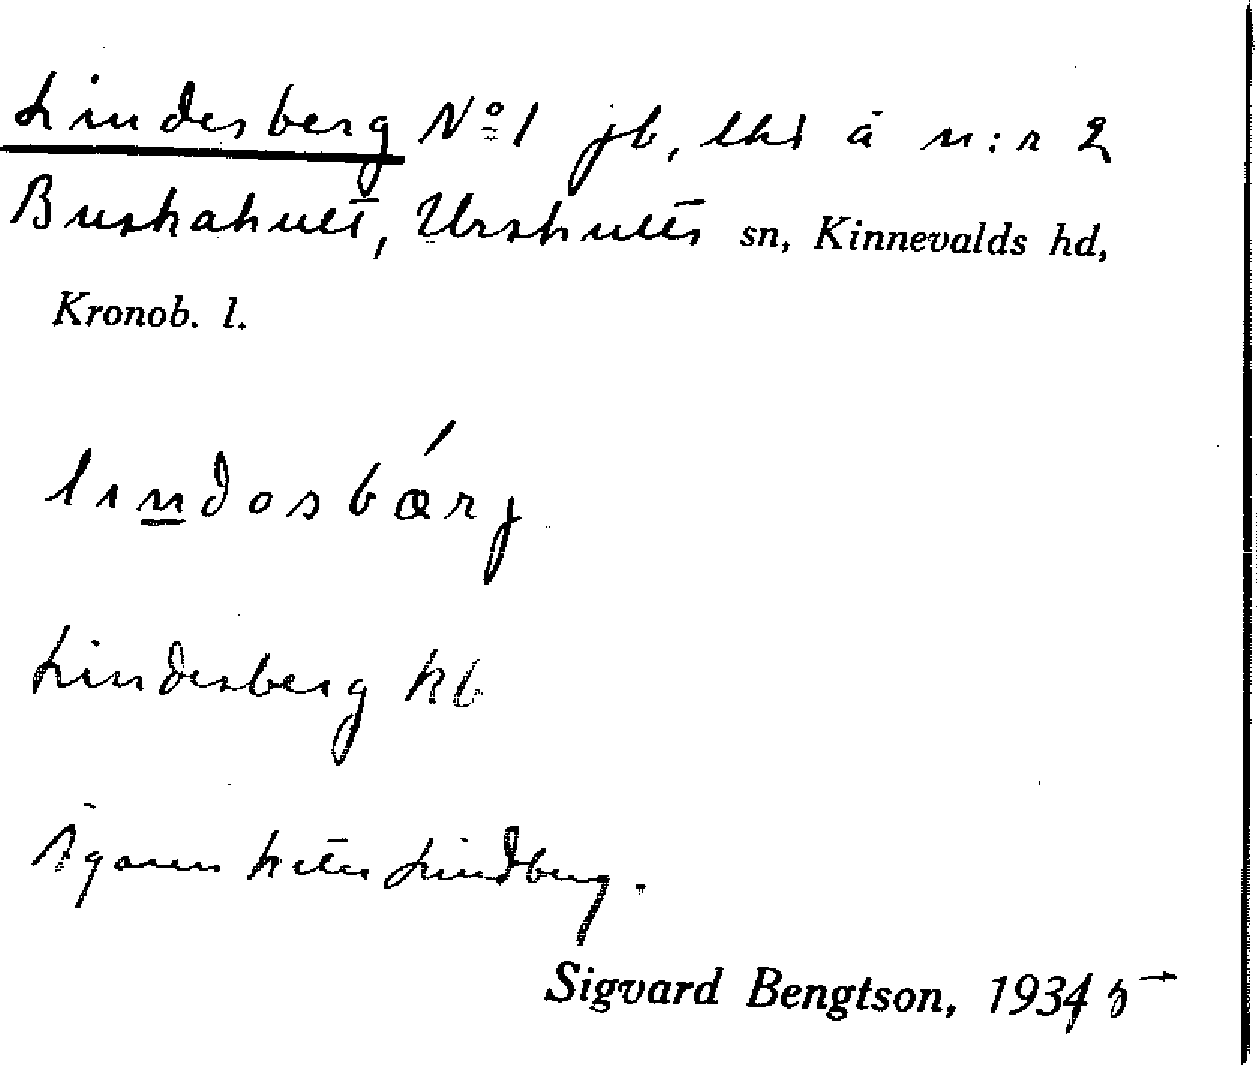 Lindesberg No 1 jb, lht å n:r 2
Buskahult, Urshults sn, Kinnevalds hd,
Kronob. l.
lindosbǽrj
Lindesberg kb
Ägaren heter Lindberg.
Sigvard Bengtson, 1934 5